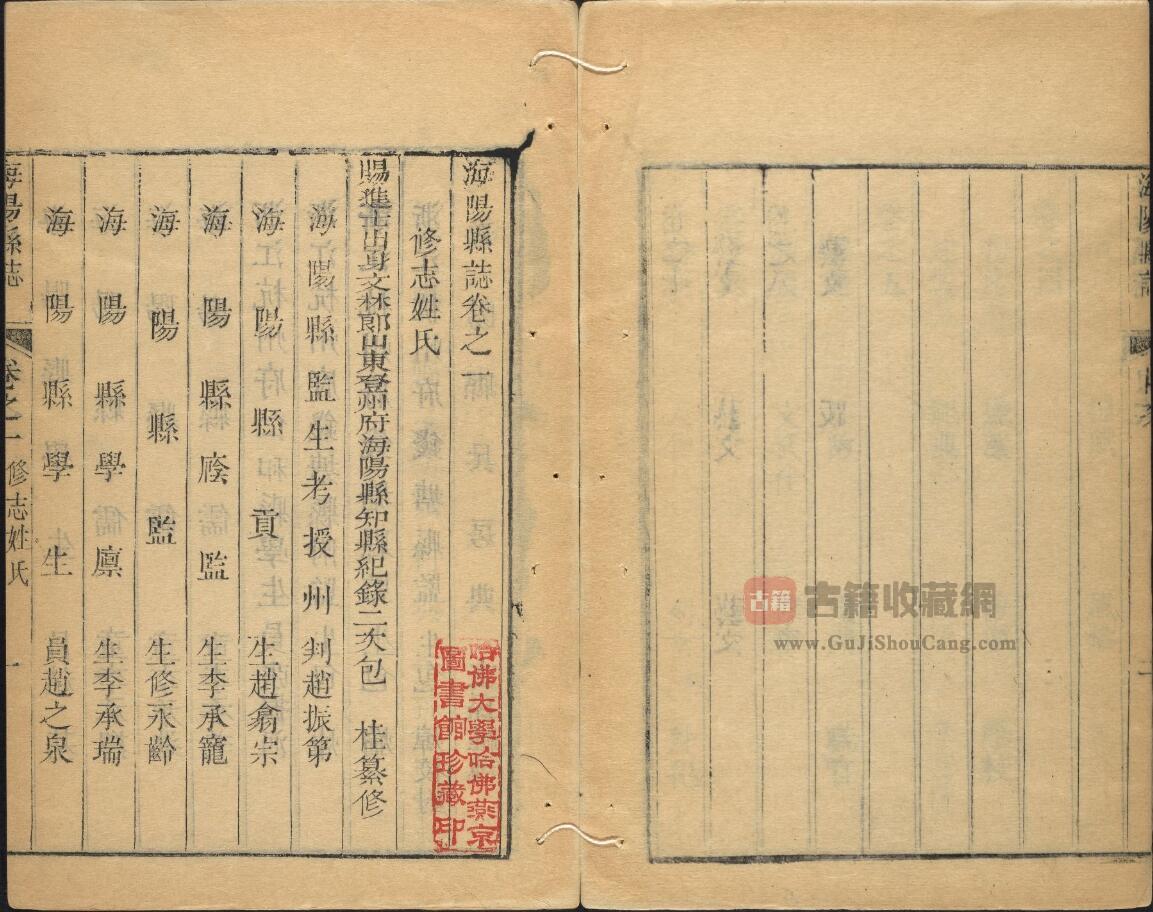 海陽縣誌卷之一
修志姓氏
賜進士出身文林郎山東登州府海陽縣知縣紀錄二次包　桂纂修
海陽縣監生考授州判趙振第
海陽縣貢生趙翕宗
海陽縣廕監生李承寵
海陽縣監生修永齡
海陽縣學儒廪生李承瑞
海陽縣學生員趙之泉
海陽縣誌
卷之一
修志姓氏
一
哈佛大學哈佛燕京
圖書館珍藏印
海陽縣誌
目录
二
古籍
古籍收藏網
www.GuJiShouCang.com